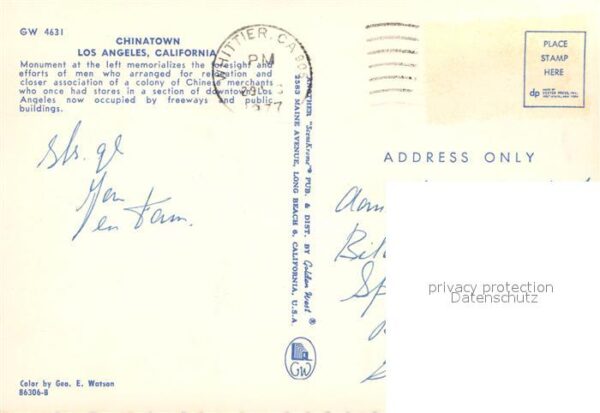 GW 4631
CHINATOWN
LOS ANGELES, CALIFORNIA
Monument at the left memorializes the foresight and
efforts of men who arranged for relocation and
closer association of a colony of Chinese merchants
who once had stores in a section of downtown Los
Angeles now occupied by freeways and public
buildings.
WHITTIER, CA 90
PM
1977
PLACE
STAMP
HERE
dp
ADDRESS ONLY
ANOTHER "ScenKrome" PUB. & DIST. BY Golden West ®
2583 MAINE AVENUE, LONG BEACH 6, CALIFORNIA, U.S.A.
GW
en Fam.
privacy protection
Datenschutz
Color by Geo. E. Watson
86306-B